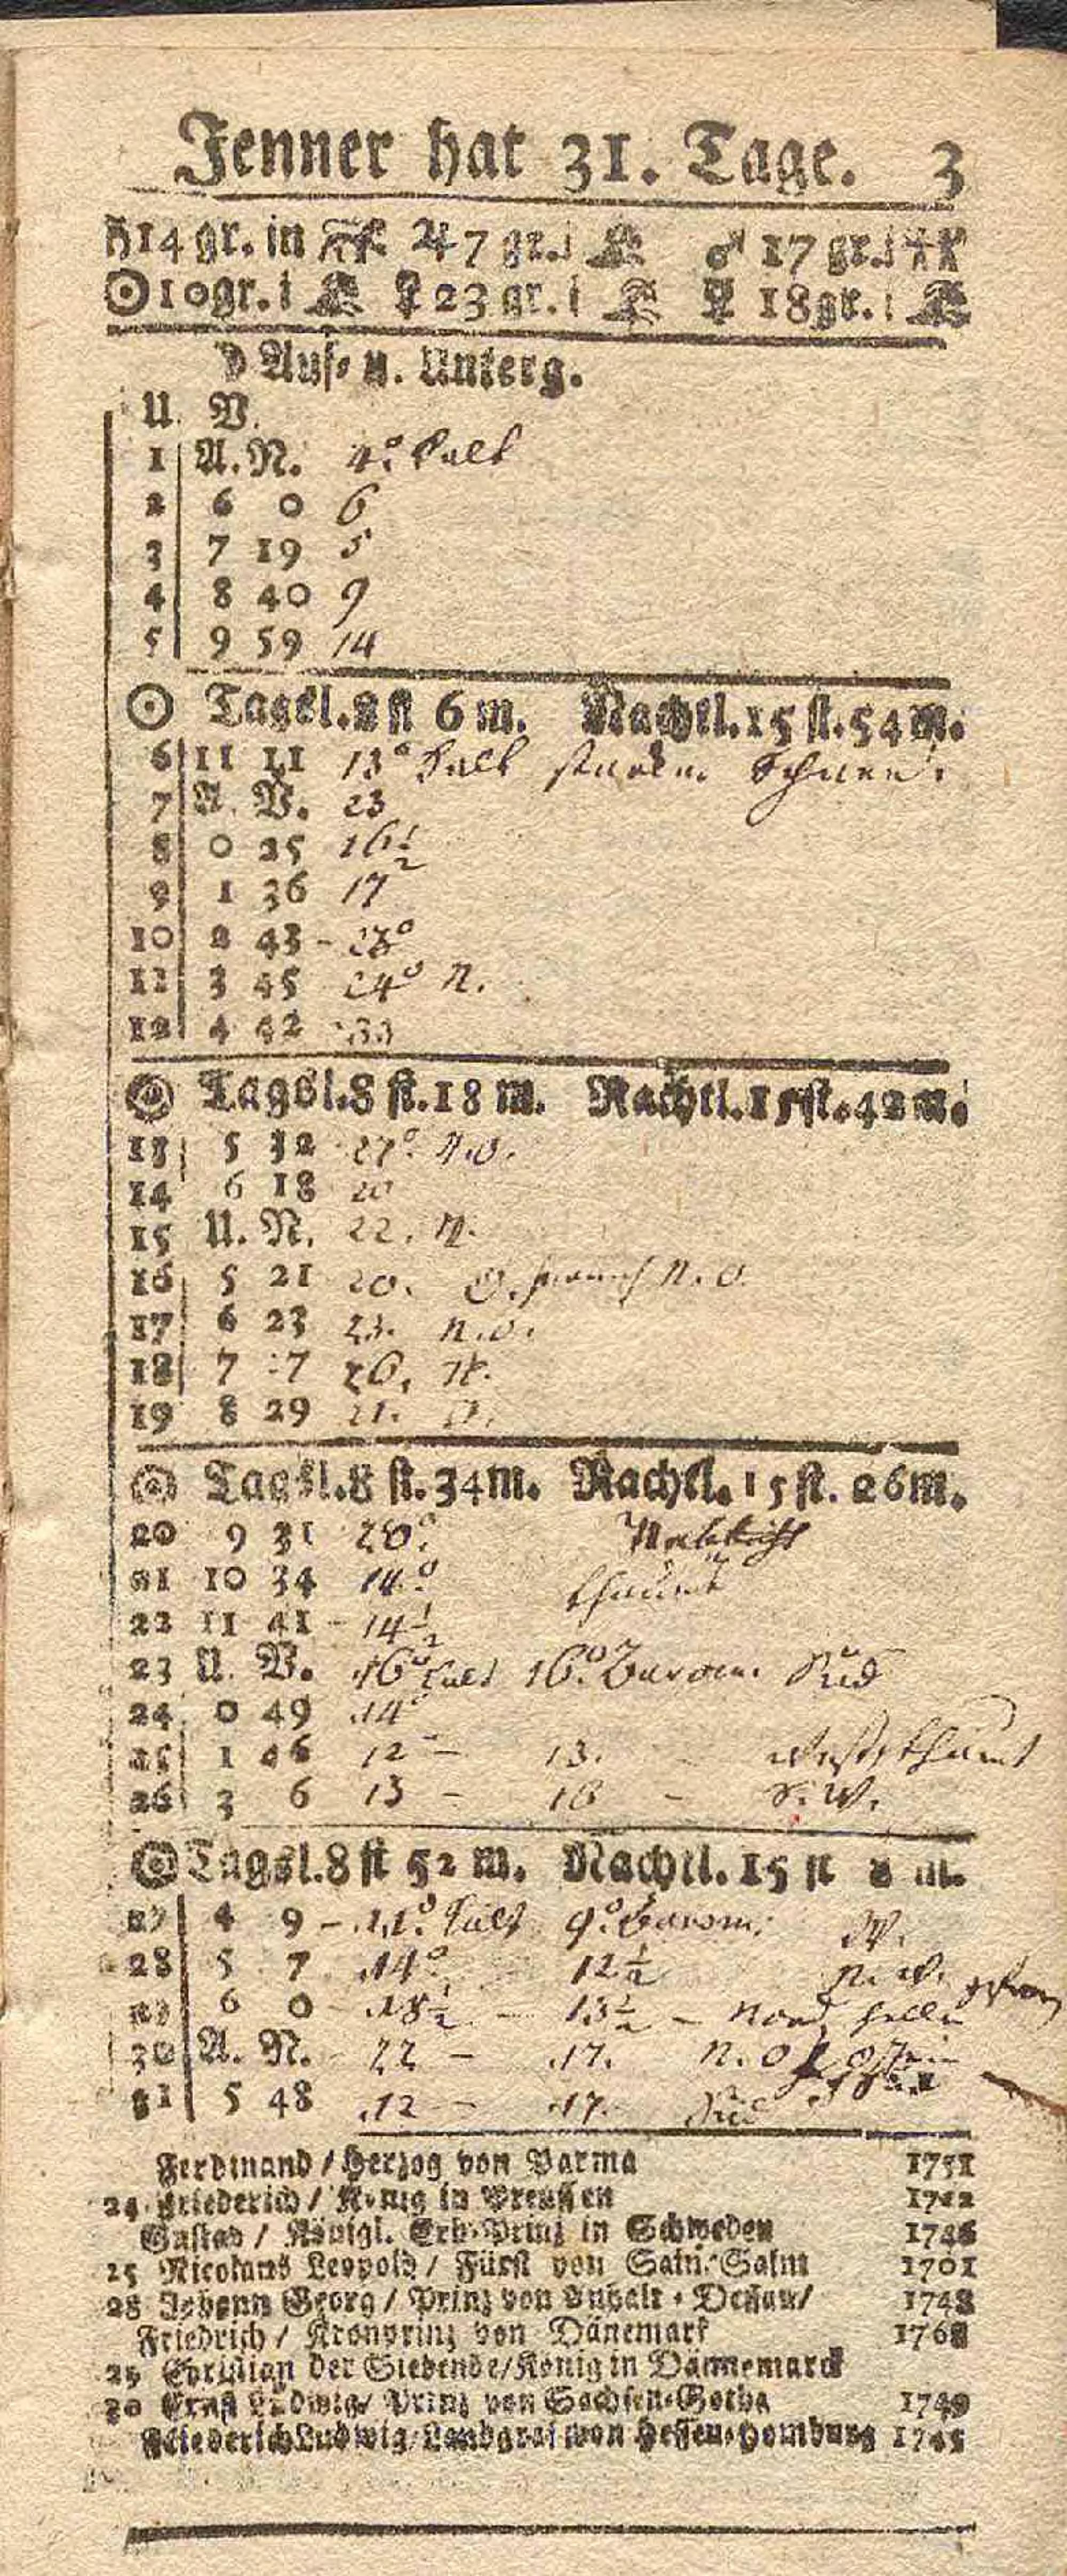 Jenner hat 31. Tage. 3
♄ 14 gr. in ♃ 7 gr. i ♂ 17 gr. i
☉ 10 gr. i ♀ 23 gr. i ☿ 18 gr. i
☽ Auf- u. Unterg.
U. V.
1 A. N. 4° kalt
2 6 0 6
3 7 19 5
4 8 40 9
5 9 59 14
☉ Tagsl. 8 st 6 m. Nachtl. 15 st. 54 m.
6 11 11 13° kalt starker Schnee
7 A. V. 23
8 0 25 16½
9 1 36 17
10 2 43 - 28°
11 3 45 24° N.
12 4 42 33
☉ Tagsl. 8 st. 18 m. Nachtl. 15 st. 42 m.
13 5 32 27° N.O.
14 6 18 20
15 U. N. 22. N.
16 5 21 20. O. N.O.
17 6 23 23. N.O.
18 7 27 26. N.
19 8 29 21. O.
☉ Tagsl. 8 st. 34 m. Nachtl. 15 st. 26 m.
20 9 31 20°
21 10 34 14° thaunt
22 11 41 - 14½
23 U. V. 16° kalt 16° Barom. Süd
24 0 49 14°
25 1 56 12 - 13. - West, thaunt
26 3 6 13 - 16 - S. W.
☉ Tagsl. 8 st 52 m. Nachtl. 15 st 8 m.
27 4 9 - 11° kalt 9° Barom: W.
28 5 7 14° 12½ N. W.
29 6 0 - 18½ - 13½ - Nord, helle
30 A. N. - 22 - 17. N. O
31 5 48 12 - 17. Süd
Ferdinand / Herzog von Parma 1751
24 Friederich / König in Preussen 1712
Gustav / Königl. Erb-Prinz in Schweden 1746
25 Nicolaus Leopold / Fürst von Salm-Salm 1701
28 Johann Georg / Prinz von Anhalt-Dessau / 1748
Friedrich / Kronprinz von Dänemark 1768
29 Christian der Siebende / König in Dännemarck
30 Ernst Ludwig / Prinz von Sachsen-Gotha 1749
Friederich Ludwig / Landgraf von Hessen-Homburg 1745